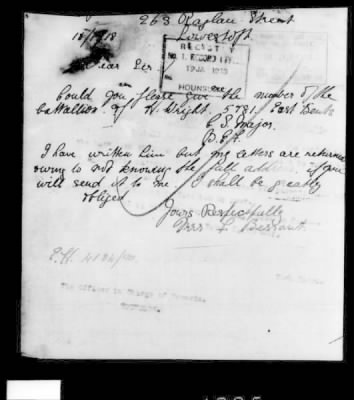 263 Raglan Street
Lowestoft
18/1/18
Dear Sir
RECORD
19 JA 1918
HOUNSLOW
Could you please give the number of the
battallion of W. Wright 5781 East Kents
C S Major
B.E.F.
I have written him but my letters are returned
owing to not knowing the full add if you
will send it to me I shall be greatly
obliged
Yours Respectfully
Mrs L
The Officer in Charge of Records,